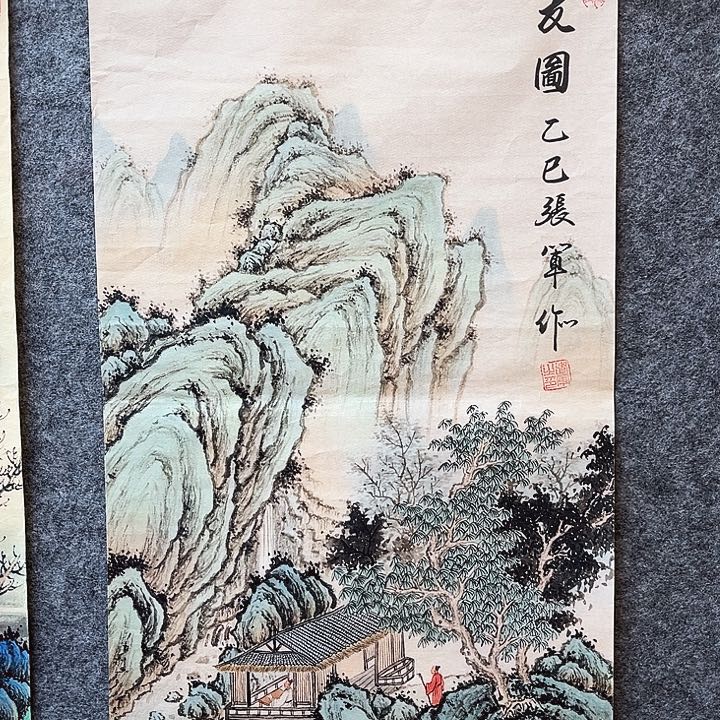 友圖乙巳張軍作